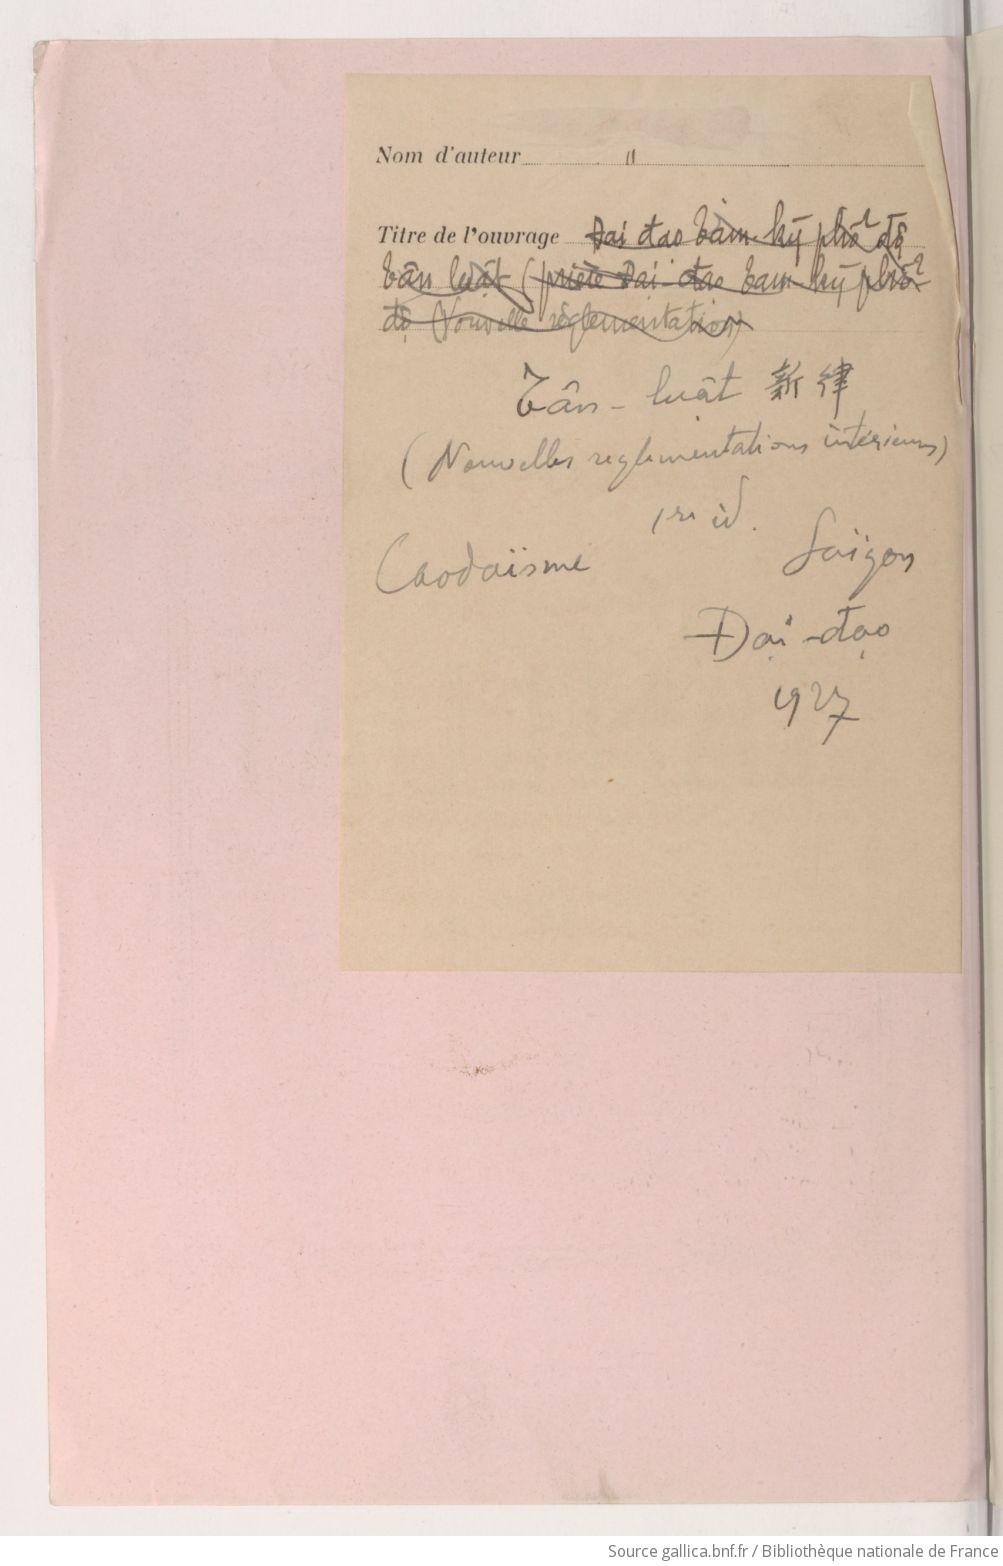 Nom d'auteur "
Titre de l'ouvrage Đai đao Tam-kỳ phổ độ
Tân luật (prière Đai-đao Tam-kỳ phổ
độ (Nouvelle réglementation)
Tân-luật 新律
(Nouvelles reglementations intérieures)
Saïgon
Caodaïsme
Đại-đạo
1927
Source gallica.bnf.fr / Bibliothèque nationale de France